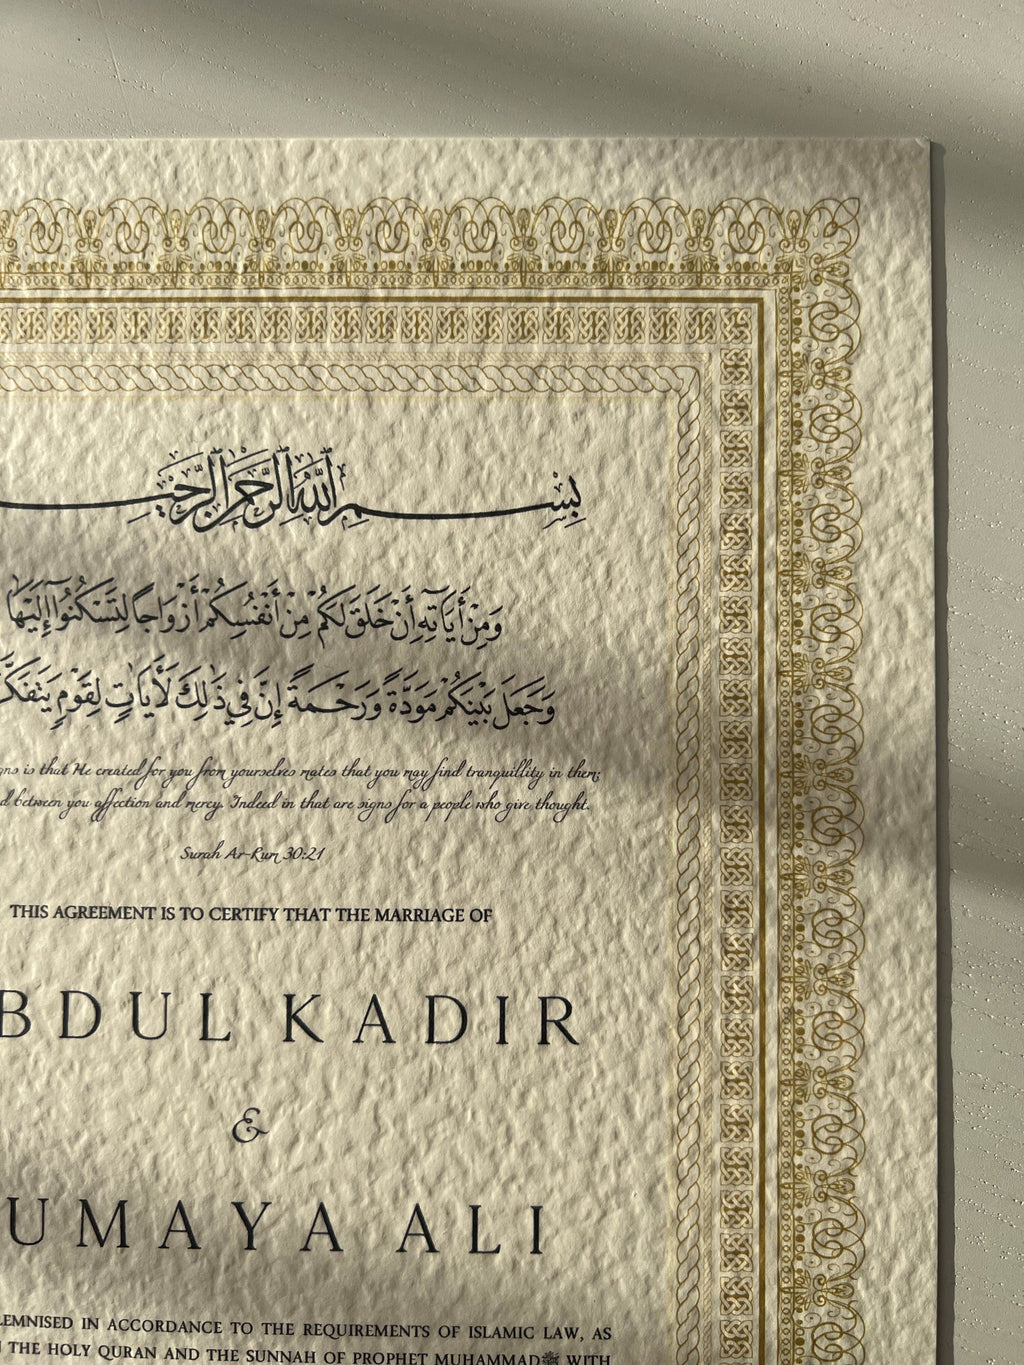 بِسْمِ اللَّهِ الرَّحْمَٰنِ الرَّحِيمِ
وَمِنْ أَيَاتِهِ أَنْ خَلَقَ لَكُمْ مِنْ أَنْفُسِكُمْ أَزْوَاجًا لِتَسْكُنُوا إِلَيْهَا
وَجَعَلَ بَيْنَكُمْ مَوَدَّةً وَرَحْمَةً إِنَّ فِي ذَٰلِكَ لَأَيَاتٍ لِقَوْمٍ
is that He created for you from yourselves mates that you may find tranquillity in them;
between you affection and mercy. Indeed in that are signs for a people who give thought.
Surah Ar-Rum 30:21
THIS AGREEMENT IS TO CERTIFY THAT THE MARRIAGE OF
BDUL KADIR
&
UMAYA ALI
LEMNISED IN ACCORDANCE TO THE REQUIREMENTS OF ISLAMIC LAW, AS
THE HOLY QURAN AND THE SUNNAH OF PROPHET MUHAMMADﷺ WITH